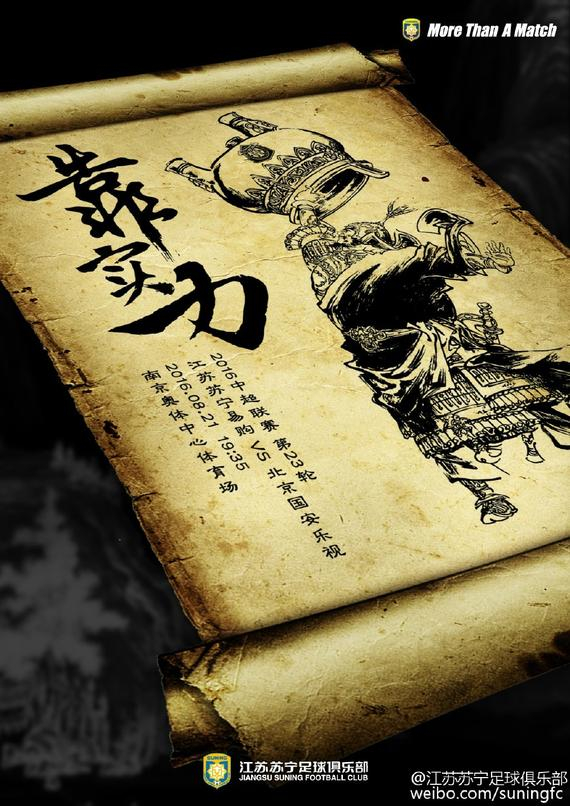 More Than A Match
靠实力
2016中超联赛 第23轮
江苏苏宁易购 VS 北京国安乐视
2016.08.21 19:35
南京奥体中心体育场
SUNING
江苏苏宁足球俱乐部
JIANGSU SUNING FOOTBALL CLUB
@江苏苏宁足球俱乐部
weibo.com/suningfc